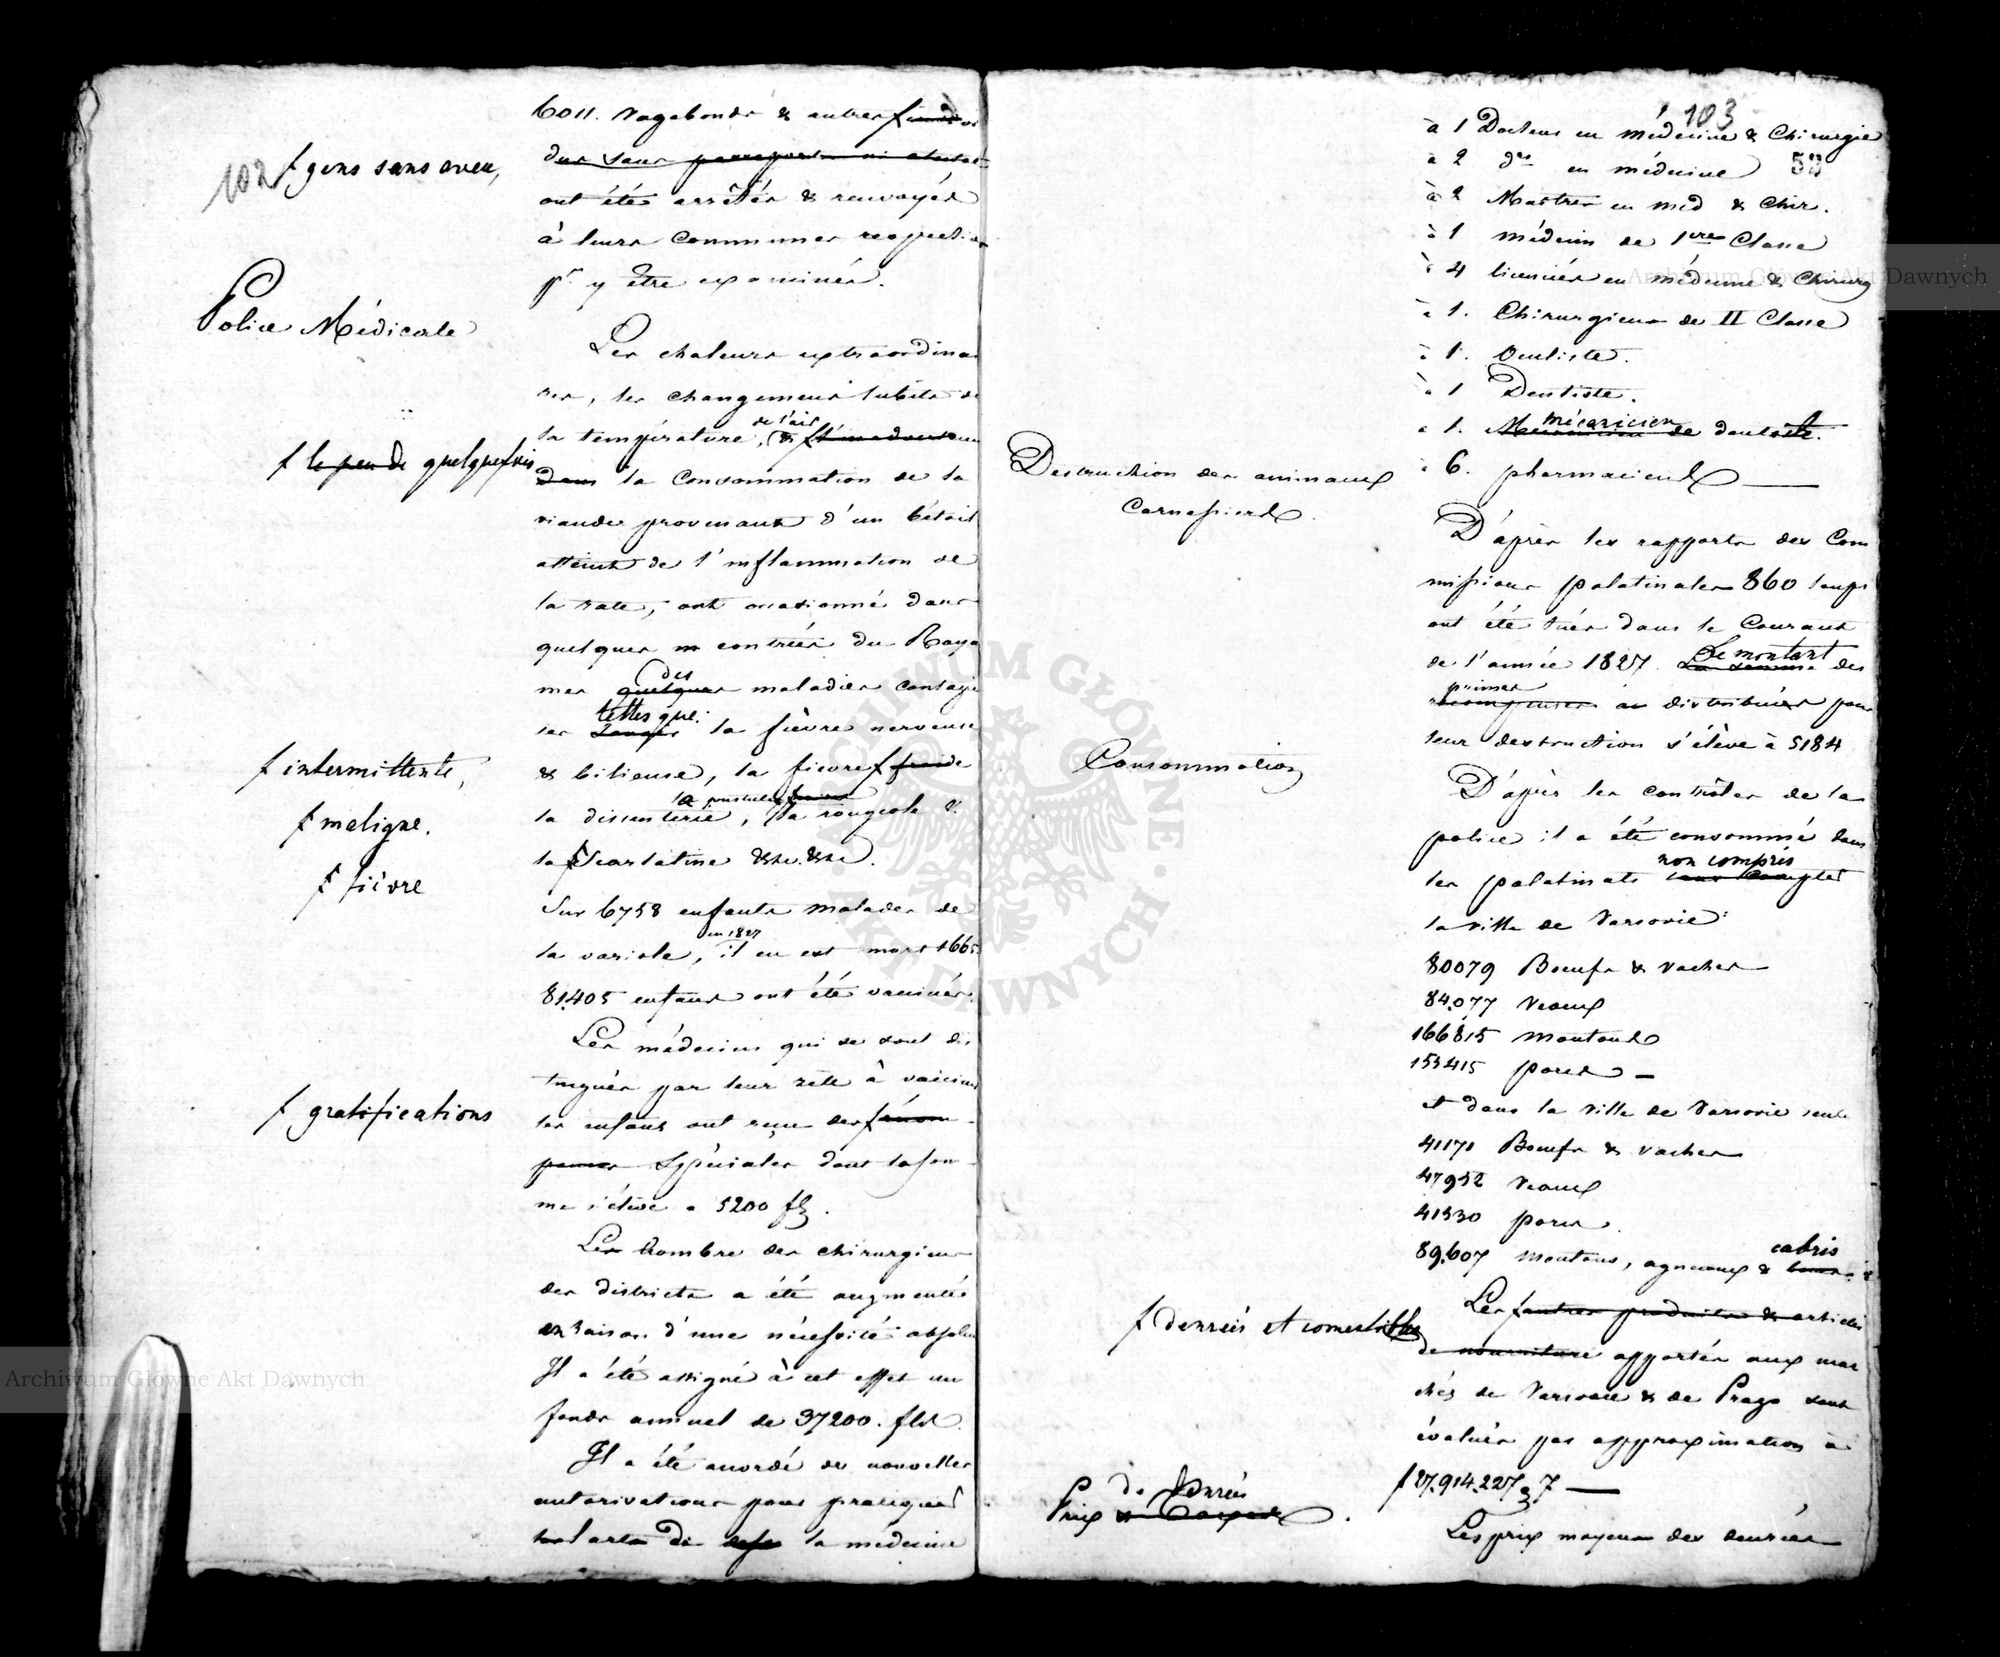 102
f gens sans aveu,
6011. Vagabonds & autres f
dus sans passeport ni attestat
ont étés arrêtés & renvoyés
à leurs Communes respectives
pr y être examinés.
Police Médicale
Les chaleurs extraordinai
res, les changemens subits de
la température, de l'air &
f le peu de quelquefois
dans la Consommation de la
viande provenant d'un bétail
atteint de l'inflammation de
la rate, ont occasionné dans
quelques contrées du Royau
mes quelques des maladies contagieu
ses telles que: la fièvre nerveuse
f intermittente,
& bilieuse, la fievre f froide
f maligne.
la dissenterie, la pustule f la rougeole &
f fièvre
la f Scarlatine &c. &c.
Sur 6758 enfants malades de
la variole, en 1827 il en est mort 1665
81,405 enfans ont été vaccinés.
Les médecins qui se sont dis
tingués par leur zèle à vacciner
f gratifications
les enfans ont reçu des f récom
penses spéciales dont la som
me s'élève a 5200 fl.
Le Nombre des chirurgiens
des districts a été augmenté
en raison d'une nécessité absolue
Il a été assigné à cet effet un
fonds annuel de 37200. fls.
Il a été accordé de nouvelles
autorisations pour pratiquer
l'art de la médecine
103
53
à 1 Docteur en médecine & Chirurgie
à 2 dos en médecine
à 2 Maitres en med & Chir.
à 1 médecin de 1re Classe
à 4 licenciés en médecine & Chirurg
à 1. Chirurgien de II Classe
à 1. Oculiste.
à 1 Dentiste.
à 1. Mécanicien mécaricien de dentiste.
à 6. pharmaciens
Destruction des animaux
Carnassiers.
D'après les rapports des Com
missions palatinales 860 loups
ont été tués dans le Courant
de l'année 1827. La somme Le montant des
récompenses primes distribuées pour
leur destruction s'élève à 5184
Consommation
D'après les contrôles de la
police il a été consommé dans
les palatinats sans compter non compris
la ville de Varsovie:
80079 Boeufs & vaches
84,077 Veaux
166,815 moutons
153415 porcs
et dans la ville de Varsovie seule
41171 Boeufs & vaches
47952 Veaux
41330 porcs.
89,607 moutons, agneaux & cabris
f denrées et comestibles
Les f autres produits & articles
de nourriture apportés aux mar
chés de Varsovie & de Praga sont
évalués par approximation à
f 27,914,227 g 7
Prix de Denrées
Les prix moyens des denrées
Archiwum Główne Akt Dawnych
Archiwum Główne Akt Dawnych
ARCHIWUM GŁÓWNE AKT DAWNYCH